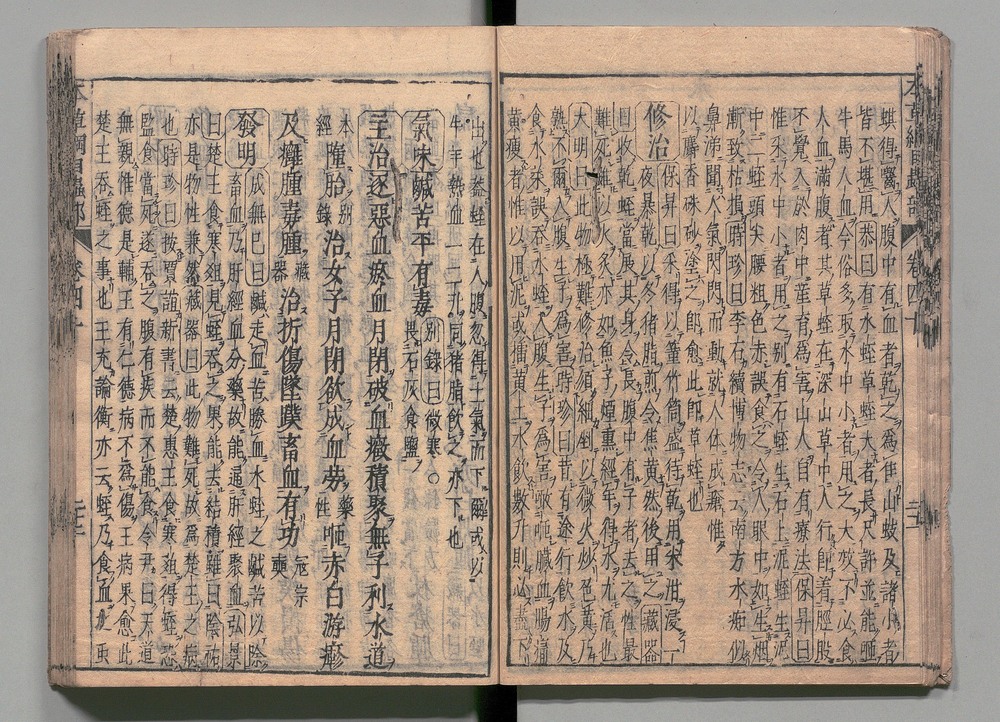 蜞得嚙人腹中有血者乾之為佳山蚑及諸小者
皆不堪用恭曰有水蛭草蛭大者長尺許並能咂
牛馬人血今俗多取水中小者用之大效不必食
人血滿腹者其草蛭在深山草中人行即着脛股
不覺入於肉中產育為害山人自有療法保昇曰
惟采水中小者用之別有石蛭生石上泥蛭生泥
中二蛭頭尖腰粗色赤誤食之令人眼中如生烟
漸致枯損時珍曰李石續博物志云南方水痴似
鼻涕聞人氣閃閃而動就人体成瘡惟
以麝香硃砂塗之即愈此即草蛭也
修治保昇曰采得以䈽竹筒盛待乾用米泔浸一
夜暴乾以冬猪脂煎令焦黄然後用之藏器
曰收乾蛭當展其身令長腹中有子者去之性最
難死雖以火炙亦如魚子烟熏經年得水尤活也
大明曰此物極難修治須細剉以微火炒色黄乃
熟不爾入腹生子為害時珍曰昔有途行飲水及
食水菜誤吞水蛭入腹生子為害噉咂臟血腸痛
黄瘦者惟以田泥或擂黄土水飲數升則必盡下
出也蓋蛭在人腹忽得土氣而下爾或以
牛羊熱血一二升同猪脂飲之亦下也
氣味鹹苦平有毒别錄曰微寒○
畏石灰食鹽
主治逐惡血瘀血月閉破血癥積聚無子利水道
本經墮胎别錄治女子月閉欲成血勞藥性咂赤白游𤺋
及癰腫毒腫藏器治折傷墜撲畜血有功寇宗奭
發明成無已曰鹹走血苦勝血水蛭之鹹苦以除
畜血乃肝經血分藥故能通肝經聚血弘景
曰楚王食寒葅見蛭吞之果能去結積雖曰陰祐
亦是物性兼然藏器曰此物難死故為楚王之病
也時珍曰按賈誼新書云楚惠王食寒葅得蛭恐
監食當死遂吞之腹有疾而不能食令尹曰天道
無親惟德是輔王有仁德病不為傷王病果愈此
楚王吞蛭之事也王充論衡亦云蛭乃食血之虫
本草綱目蟲部
卷四十